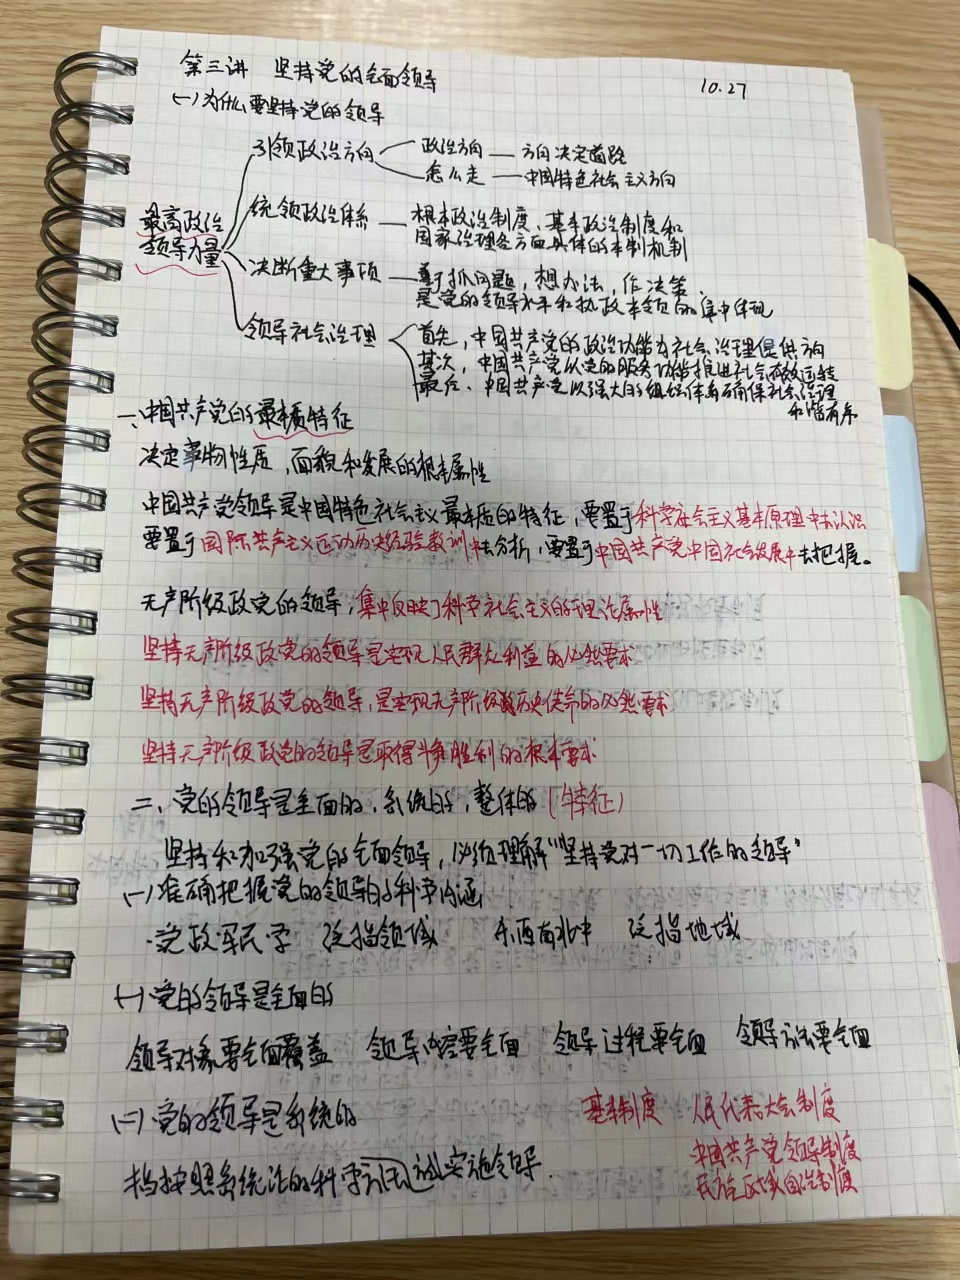 第三讲 坚持党的全面领导
10.27
(一)为什么要坚持党的领导
最高政治
领导力量
引领政治方向
政治方向 — 方向决定道路
怎么走 — 中国特色社会主义方向
统领政治体系 — 根本政治制度、基本政治制度和
国家治理各方面具体的体制机制
决断重大事项 — 善于抓问题，想办法，作决策，
是党的领导水平和执政本领的集中体现
领导社会治理
首先，中国共产党的政治功能为社会治理提供方向
其次，中国共产党以党的服务功能推进社会有效运转
最后，中国共产党以强大的组织体系确保社会治理
和谐有序
一、中国共产党的最本质特征
决定事物性质，面貌和发展的根本属性
中国共产党领导是中国特色社会主义最本质的特征，要置于科学社会主义基本原理中去认识
要置于国际共产主义运动历史经验教训中去分析，要置于中国共产党中国社会发展中去把握。
无产阶级政党的领导，集中反映了科学社会主义的理论属性
坚持无产阶级政党的领导是实现人民群众利益的必然要求
坚持无产阶级政党的领导，是实现无产阶级历史使命的必然要求
坚持无产阶级政党的领导是取得斗争胜利的根本要求
二、党的领导是全面的，系统的，整体的（特征）
坚持和加强党的全面领导，必须理解“坚持党对一切工作的领导”
(一)准确把握党的领导的科学内涵
·党政军民学 泛指领域 东西南北中 泛指地域
(一)党的领导是全面的
领导对象要全面覆盖 领导内容要全面 领导过程要全面 领导方法要全面
(二)党的领导是系统的
基本制度 人民代表大会制度
中国共产党领导制度
民族区域自治制度
指按照系统论的科学方法实施领导